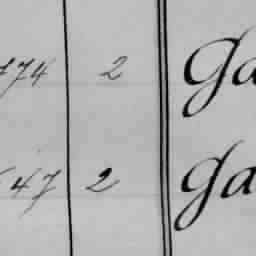 174 2 Ga
47 2 Ga